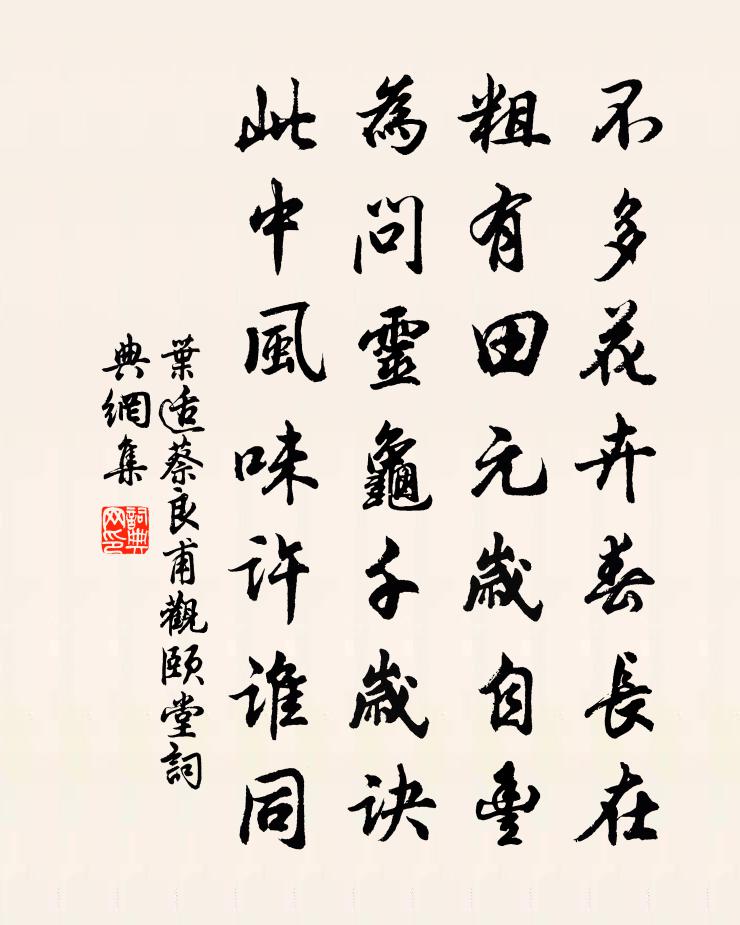 不多花卉春長在
粗有田元歲自豐
為問靈龜千歲訣
此中風味許誰同
葉适蔡良甫觀頤堂詞
典網集
詞典
网印